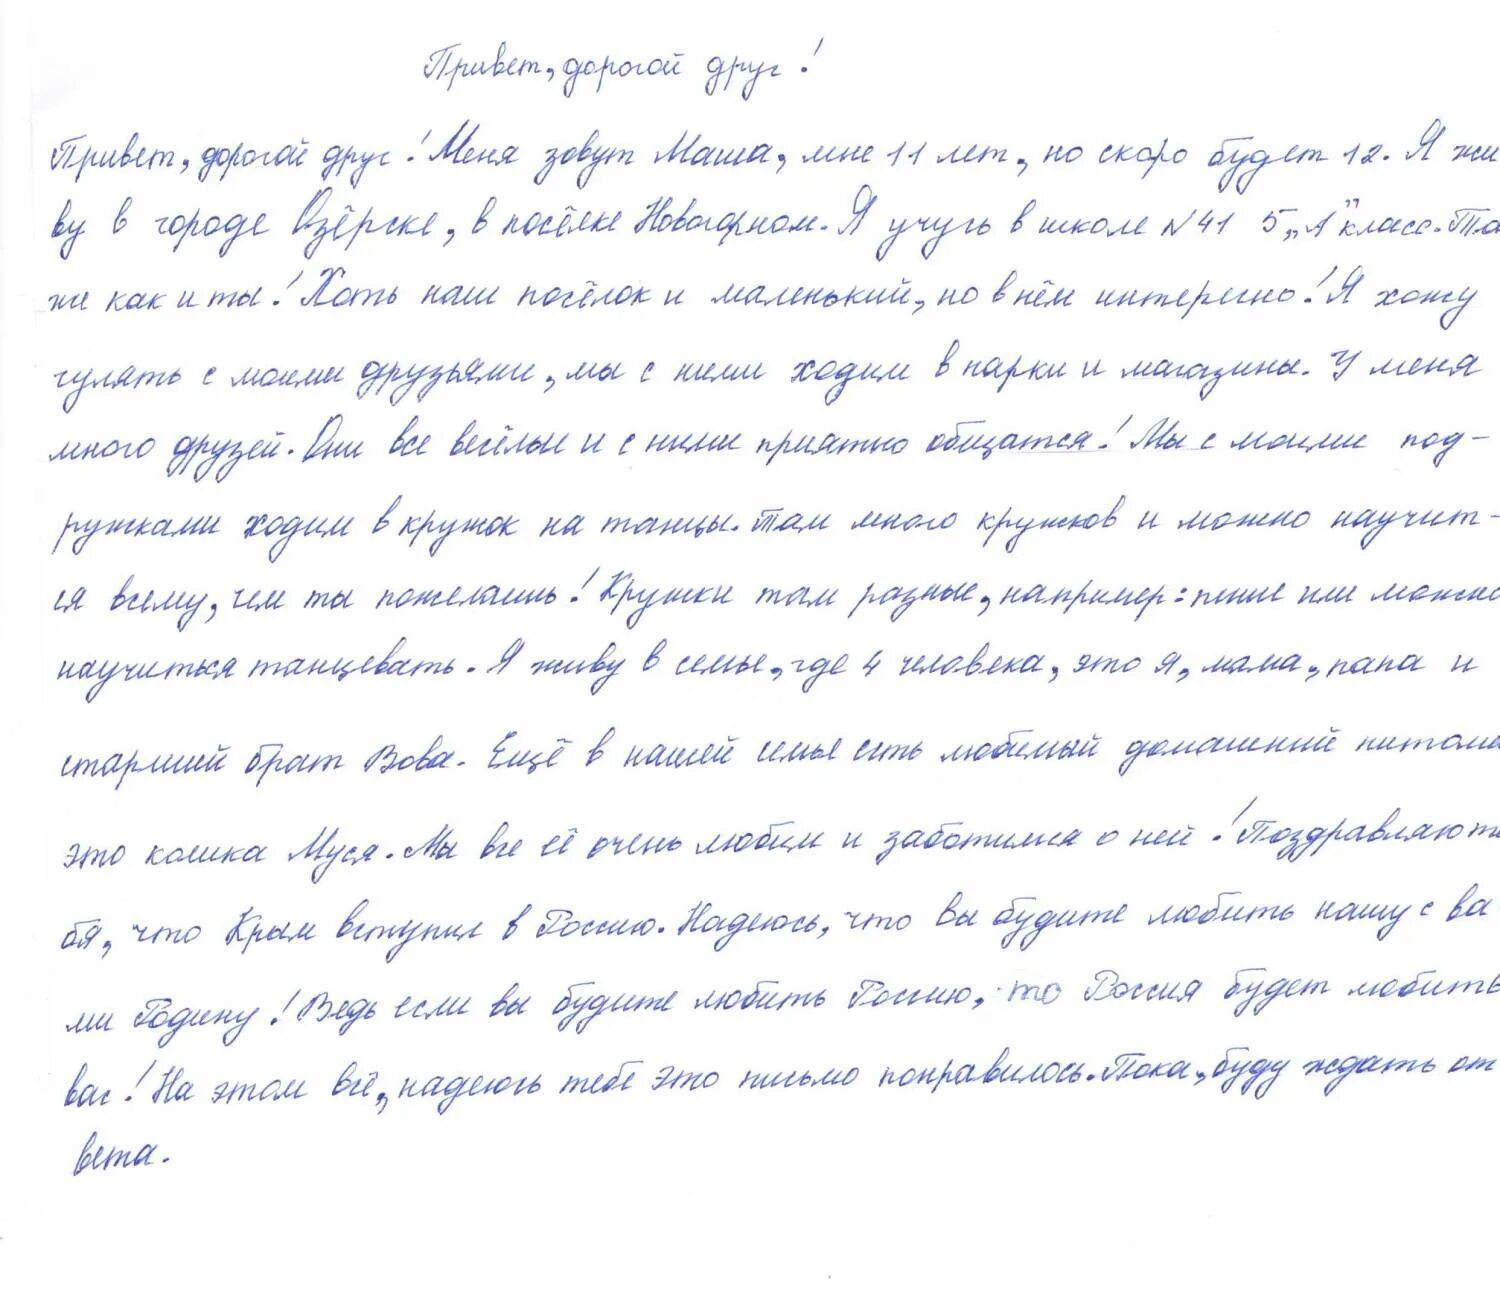 Привет, дорогой друг!
Привет, дорогой друг! Меня зовут Маша, мне 11 лет, но скоро будет 12. Я жи
ву в городе Озёрске, в посёлке Новогорном. Я учусь в школе №41 5 „А" класс. Та
же как и ты! Хоть наш посёлок и маленький, но в нём интересно! Я хожу
гулять с моими друзьями, мы с ними ходим в парки и магазины. У меня
много друзей. Они все весёлые и с ними приятно общатся! Мы с моими под-
ружками ходим в кружок на танцы. Там много кружков и можно научит-
ся всему, чем ты пожелаешь! Кружки там разные, например: пение или можно
научиться танцевать. Я живу в семье, где 4 человека, это я, мама, папа и
старший брат Вова. Ещё в нашей семье есть любимый домашний питоме
это кошка Муся. Мы все её очень любим и заботимся о ней! Поздравляю те
бя, что Крым вступил в Россию. Надеюсь, что вы будите любить нашу с ва
ми Родину! Ведь если вы будите любить Россию, то Россия будет любить
вас! На этом всё, надеюсь тебе это письмо понравилось. Пока, буду ждать от
вета.